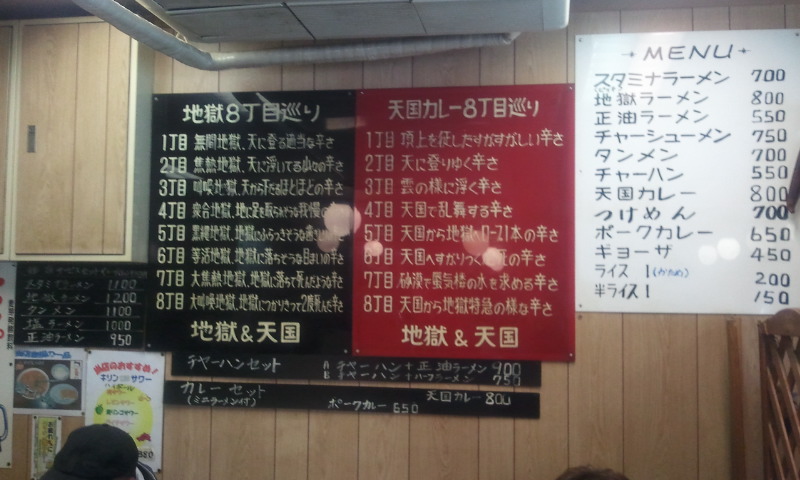 地獄8丁目巡り
1丁目 無間地獄、天に登る適当な辛さ
2丁目 焦熱地獄、天に浮いてる山々の辛さ
3丁目 叫喚地獄、天から下たるほとほとの辛さ
4丁目 衆合地獄、地に足を取られそうな我慢の
5丁目 黒縄地獄、地獄にふらつきそうな
6丁目 等活地獄、地獄に落ちそうな目まいの辛さ
7丁目 大焦熱地獄、地獄に落ちて死んだような辛さ
8丁目 大叫喚地獄、地獄につかりきって2度死んだ辛さ
地獄&天国
天国カレー8丁目巡り
1丁目 頂上を征したすがすがしい辛さ
2丁目 天に登りゆく辛さ
3丁目 雲の様に浮く辛さ
4丁目 天国で乱舞する辛さ
5丁目 天国から地獄へロープ1本の辛さ
6丁目 天国へすがりつく の辛さ
7丁目 砂漠で蜃気楼の水を求める辛さ
8丁目 天国から地獄特急の様な辛さ
地獄&天国
MENU
スタミナラーメン 700
地獄ラーメン 800
正油ラーメン 550
チャーシューメン 750
タンメン 700
チャーハン 550
天国カレー 800
つけめん 700
ポークカレー 650
ギョーザ 450
ライス 1(かため) 200
半ライス1 150
スタミナラーメン 1100
地獄ラーメン 1200
タンメン 1100
塩ラーメン 1000
正油ラーメン 950
チャーハンセット
A チャーハン+正油ラーメン 900
B チャーハン+ハーフラーメン 750
カレーセット
(ミニラーメン付)
ポークカレー 650
天国カレー 800
当店のおすすめ!
キリン サワー